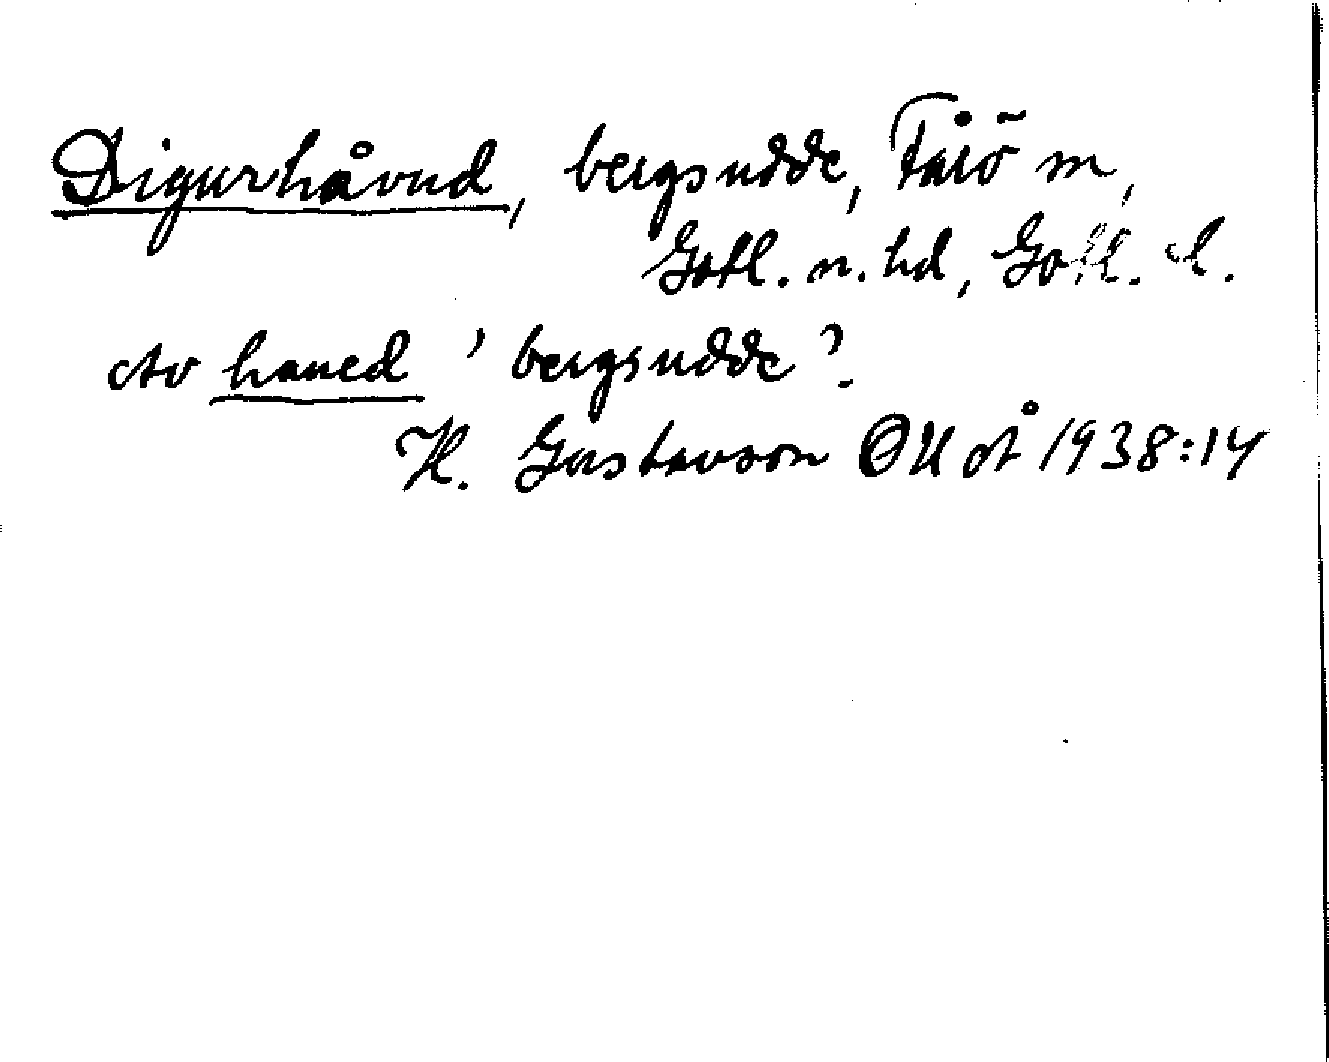 Digurhåvud, bergsudde, Fårö sn,
Gotl. n. hd, Gotl. l.
Av haued 'bergsudde'.
H. Gustavson OUÅ 1938:14